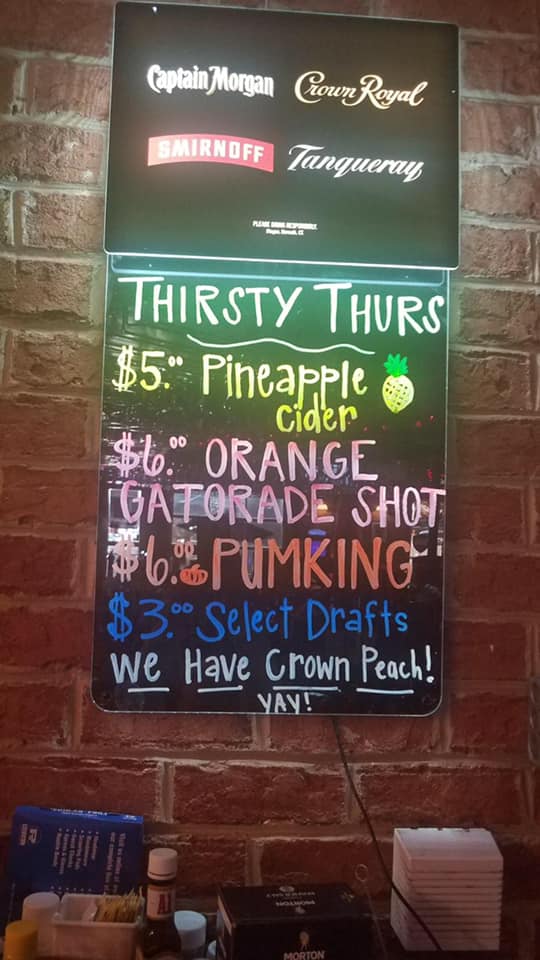 Captain Morgan
Crown Royal
SMIRNOFF
Tanqueray
PLEASE DRINK RESPONSIBLY.
THIRSTY THURS
$5.00 Pineapple
cider
$6.00 ORANGE
GATORADE SHOT
$6.00 PUMKING
$3.00 Select Drafts
We Have Crown Peach!
YAY!
A1
MORTON
MORTON